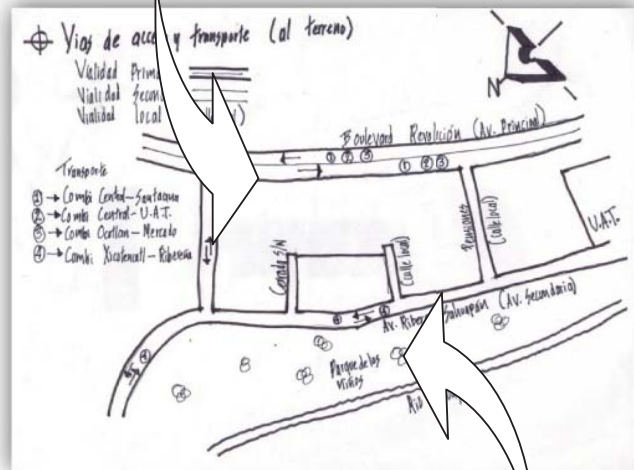 Vias de acce y transporte (al terreno)
Vialidad Prim
Vialidad Secon
Vialidad local
N
Boulevard Revolución (Av. Principal)
① ② ③
① ② ③
Transporte
① → Combi Central-Santaana
② → Combi Central-U.A.T.
③ → Combi Ocotlan-Mercado
④ → Combi Xicotencatl-Ribereña
Cerrada S/N
(Calle local)
Pensiones
(Calle local)
U.A.T.
④ ④
Av. Riber Zahuapan (Av. Secundaria)
④
Parque de los
Niños
Rio